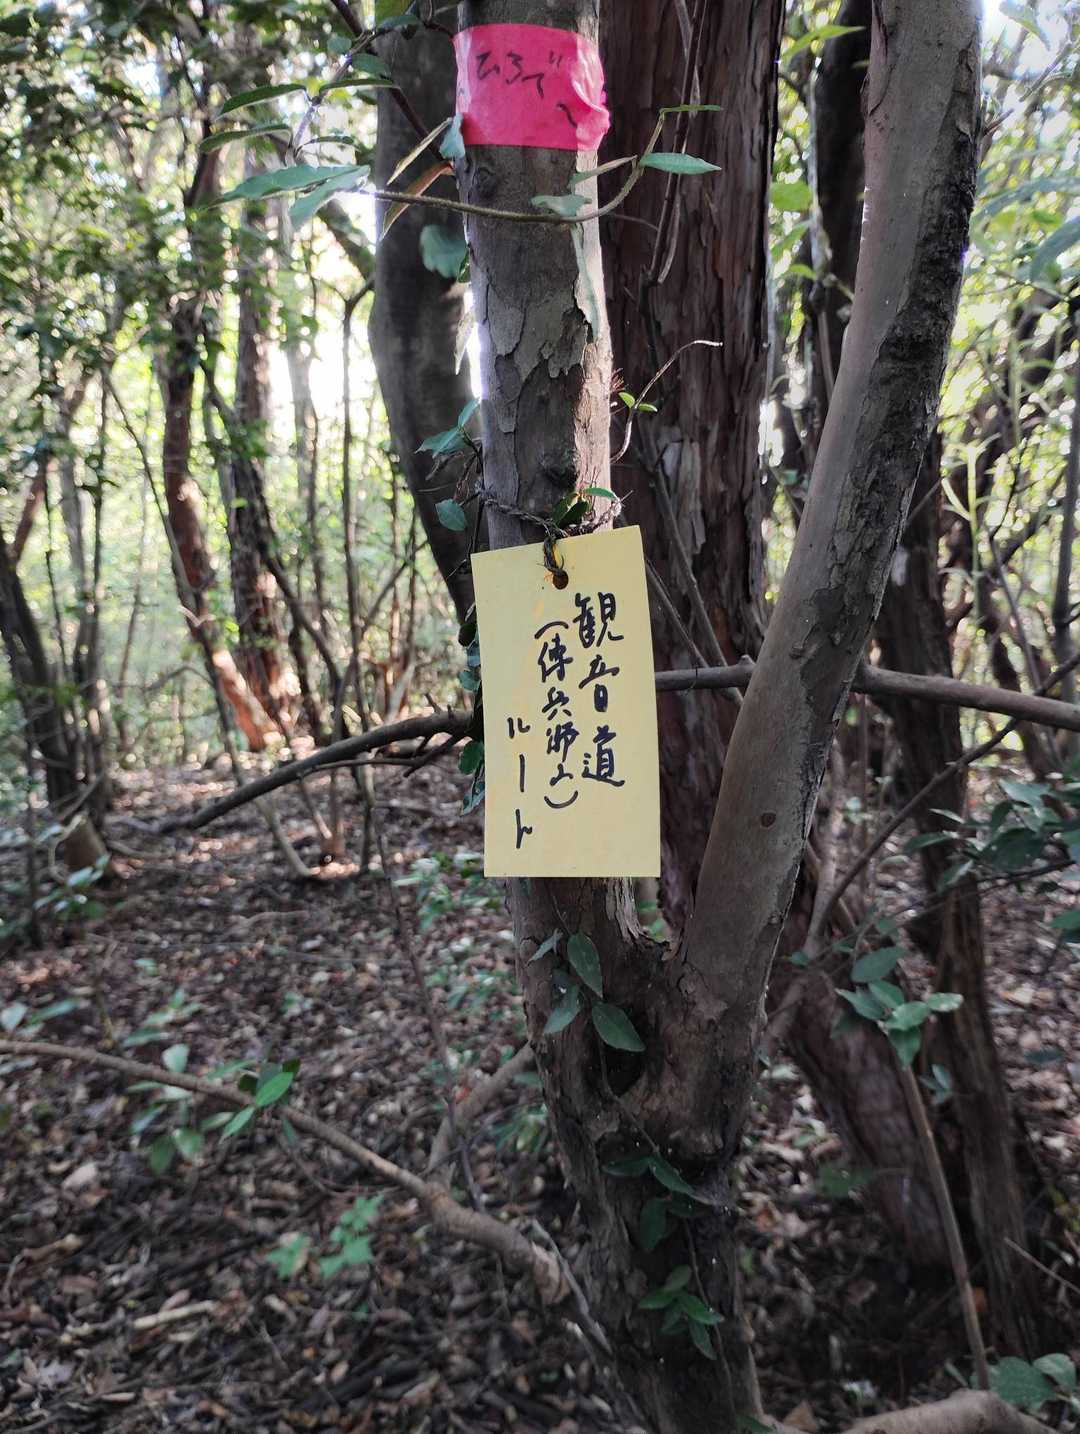 ひろで〜
観音道
(傳兵衛山)
ルート